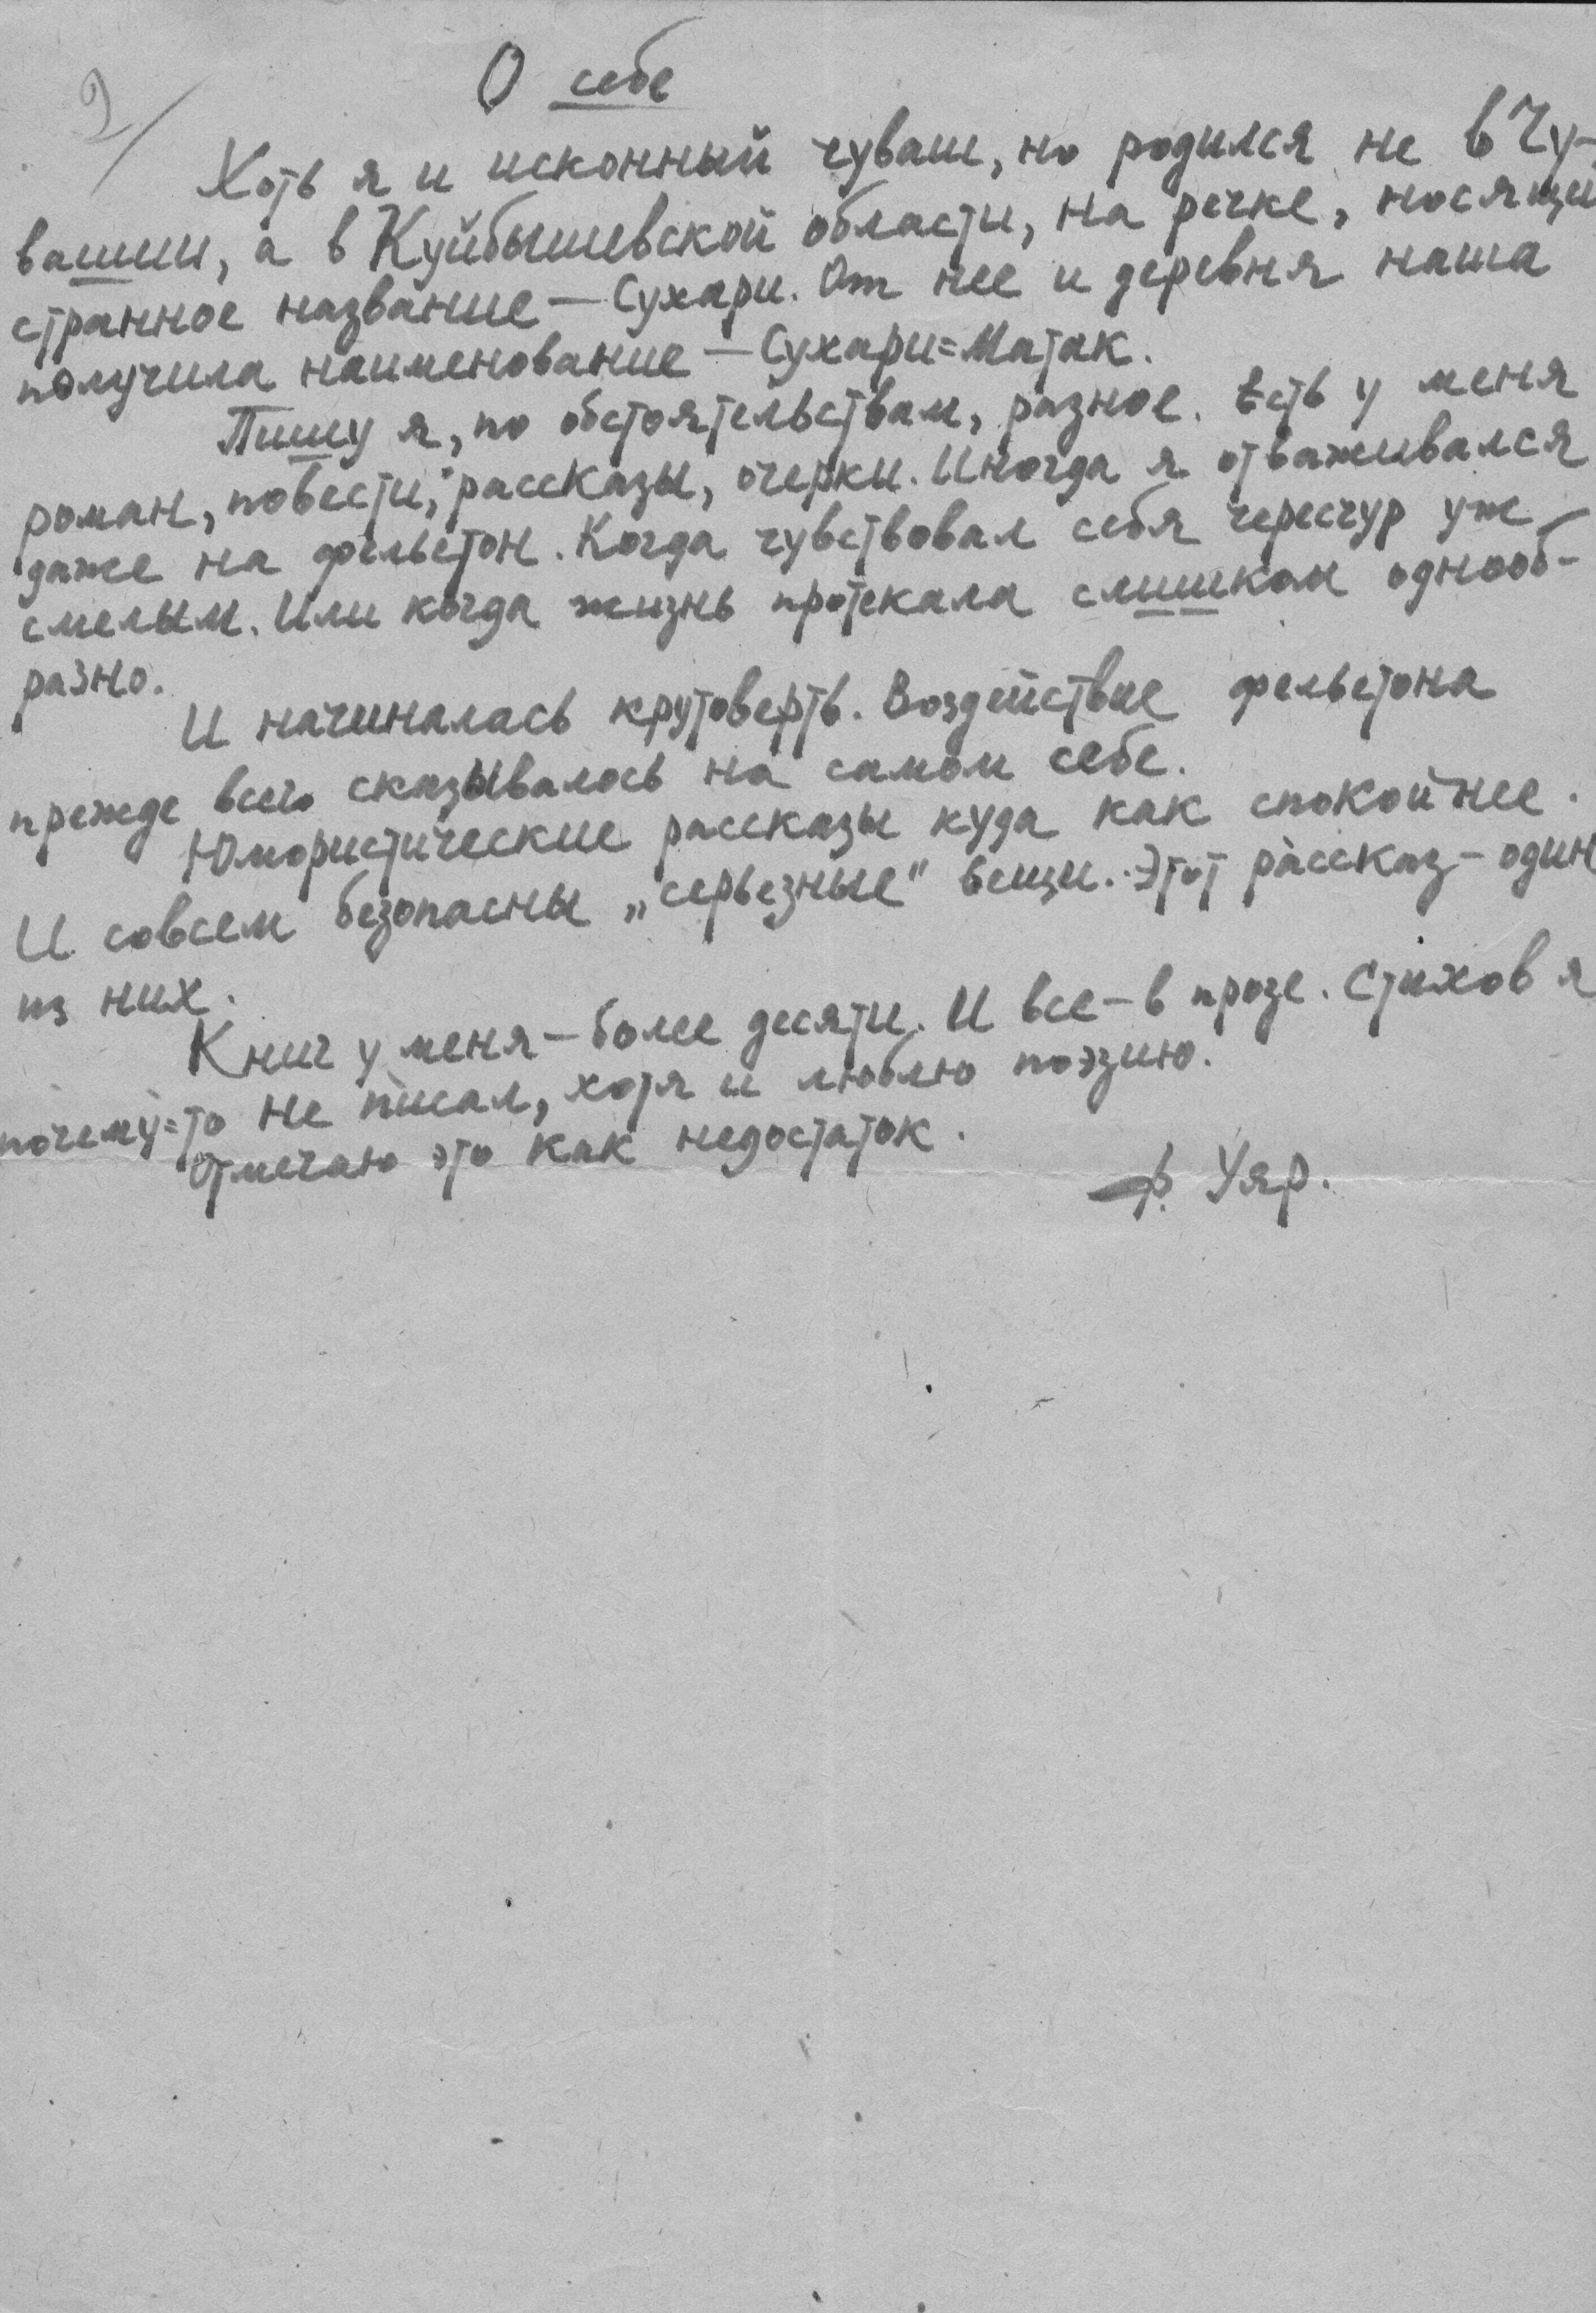 2/
О себе
Хоть я и исконный чуваш, но родился не в Чу-
вашии, а в Куйбышевской области, на речке, носящей
странное название — Сухари. От нее и деревня наша
получила наименование — Сухари=Матак.
Пишу я, по обстоятельствам, разное. Есть у меня
роман, повести, рассказы, очерки. Иногда я отваживался
даже на фельетон. Когда чувствовал себя чересчур уж
смелым. Или когда жизнь протекала слишком однооб-
разно.
И начиналась крутоверть. Воздействие фельетона
прежде всего сказывалось на самом себе.
Юмористические рассказы куда как спокойнее.
И совсем безопасны „серьезные" вещи. Этот рассказ - один
из них.
Книг у меня — более десяти. И все — в прозе. Стихов я
почему=то не писал, хотя и люблю поэзию.
Отмечаю это как недостаток.
Ф. Уяр.